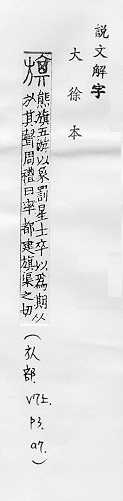 說文解字
大徐本
熊旗五游以象罰星士卒以為期从
㫃其聲周禮曰率都建旗渠之切
(㫃部. V7上. P3. a7.)